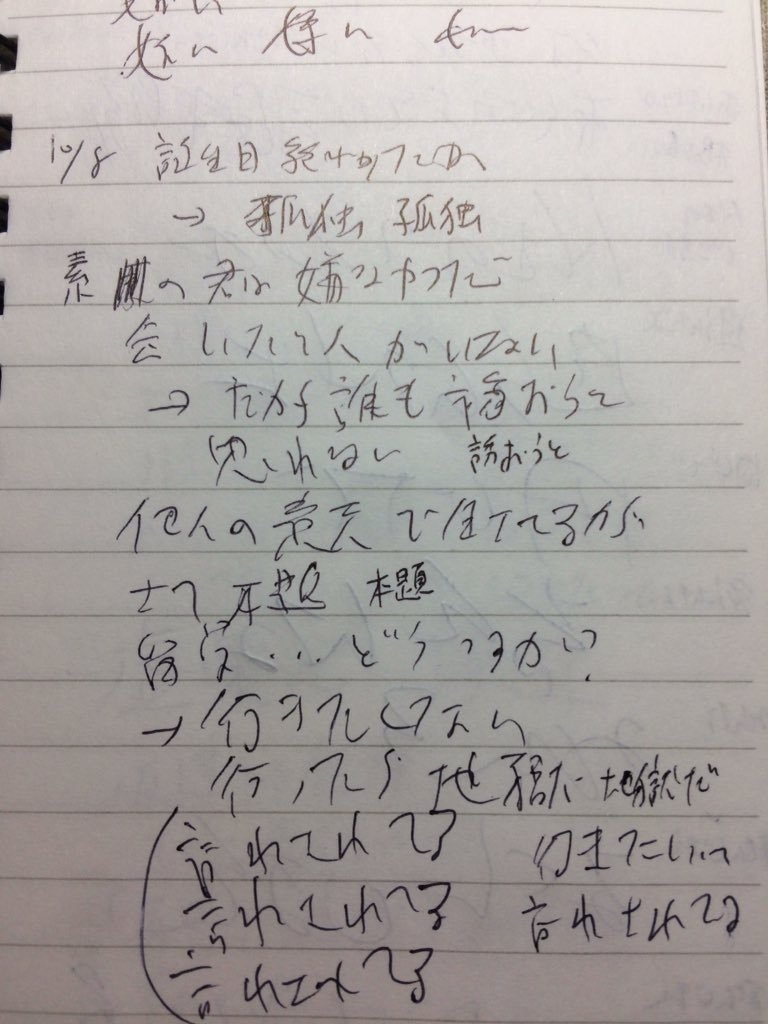 嫌い 嫌い
10/8 誕生日 終わったが
→ 孤独 孤独
素の君は嫌なやつだ
会いたい人がいない
→ だから誰も誘おうと
思われない 誘おうと
他人の意志で生きてるが
さて 本題 本題
留学...どうするか?
→ 行きたくない
行ったら地獄だ 地獄だ
言わされてる 行きたいって
言わされてる 言わされてる
言わされてる